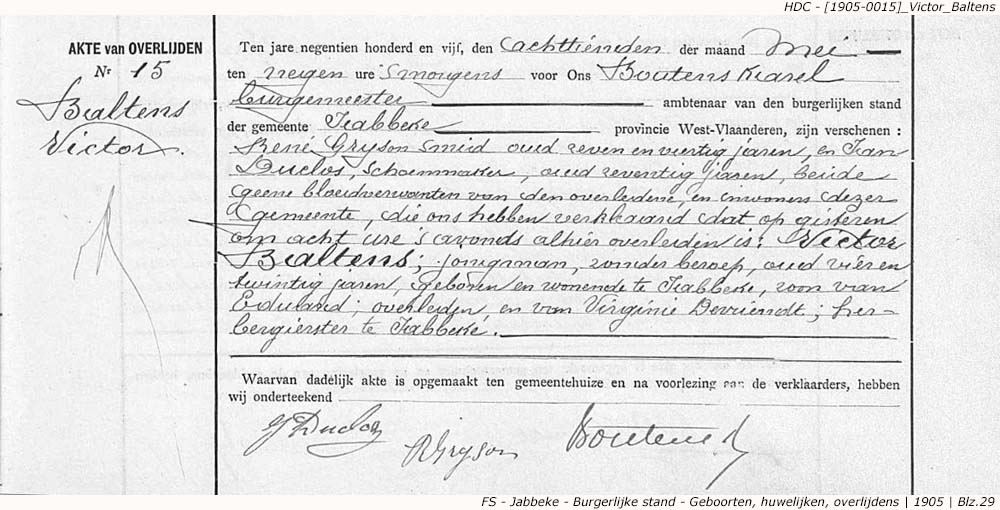 HDC - [1905-0015]_Victor_Baltens
AKTE van OVERLIJDEN
Nr 15
Baltens
Victor.
Ten jare negentien honderd en vijf, den achttienden der maand Mei
ten negen ure smorgens voor Ons Boutens Karel
burgemeester ambtenaar van den burgerlijken stand
der gemeente Jabbeke provincie West-Vlaanderen, zijn verschenen :
René Gryson smid oud zeven en veertig jaren, en Jean
Duclos, schoenmaker, oud zeventig jaren, beide
geene bloedverwanten van den overledene, en inwoners dezer
gemeente, die ons hebben verklaard dat op gisteren
om acht ure 's avonds alhier overleden is: Victor
Baltens; jongman, zonder beroep, oud vier en
twintig jaren, geboren en wonende te Jabbeke, zoon van
Eduard; overleden, en van Virginie Devriendt; her-
bergierster te Jabbeke.
Waarvan dadelijk akte is opgemaakt ten gemeentehuize en na voorlezing aan de verklaarders, hebben
wij onderteekend
J Duclos
R Gryson
Boutens K
FS - Jabbeke - Burgerlijke stand - Geboorten, huwelijken, overlijdens | 1905 | Blz.29